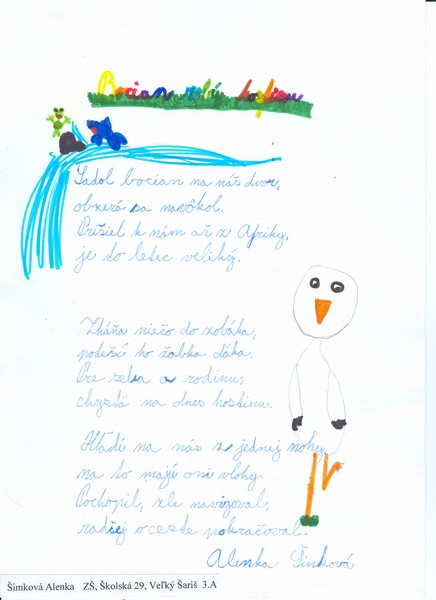 Bocian robí hostinu
Sadol bocian na náš dvor,
obzerá sa navôkol.
Prišiel k nám až z Afriky,
je to letec veliký.
Zháňa niečo do zobáka,
poteší ho žabka ďáka.
Pre seba a rodinu,
chystá na dnes hostinu.
Hľadí na nás z jednej nohy,
na to majú oni vlohy.
Pochopil, zle navigoval,
radšej v ceste pokračoval.
Alenka Šimková
Šimková Alenka ZŠ, Školská 29, Veľký Šariš 3.A